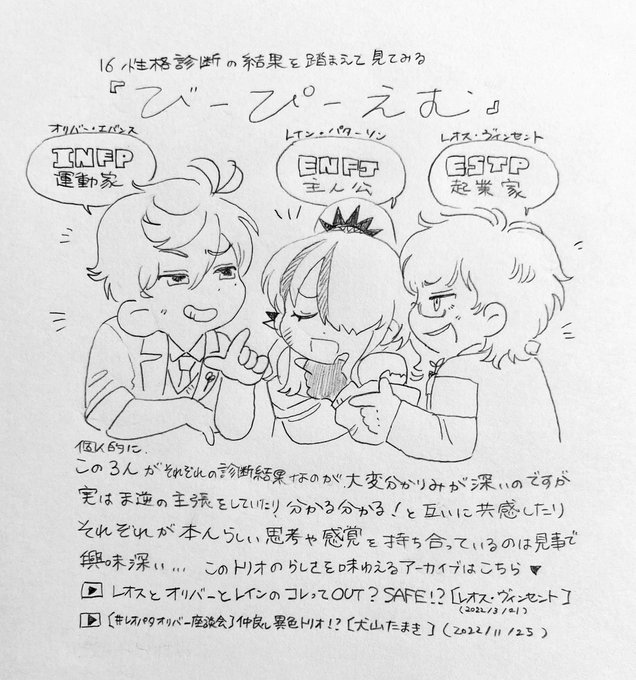 16性格診断の結果を踏まえて見てみる
『びーぴーえむ』
オリバー・エバンス
INFP
運動家
レイン・パターソン
ENFJ
主人公
レオス・ヴィンセント
ESTP
起業家
個人的に、
この3人がそれぞれの診断結果なのが大変分かりみが深いのですが
実はま逆の主張をしていたり、分かる分かる!と互いに共感したり
それぞれが本人らしい思考や感覚を持ち合っているのは見事で
興味深い… このトリオのらしさを味わえるアーカイブはこちら♥
▶ レオスとオリバーとレインのコレってOUT?SAFE!?[レオス・ヴィンセント]
(2022/3/21)
▶ 【#レオパタオリバー座談会】仲良し異色トリオ!?[犬山たまき](2022/11/25)